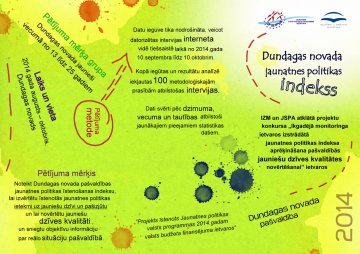 Pētījuma mērķa grupa
Dundagas novada jaunieši
vecumā no 13 līdz 25 gadiem
Laiks un vieta
2014.gada augusts – oktobris.
Dundagas novads
Pētījuma
metode
Pētījuma mērķis
Noteikt Dundagas novada pašvaldības
jaunatnes politikas īstenošanas indeksu,
lai izvērtētu īstenotās jaunatnes politikas
ietekmi uz jauniešu dzīvi un pašizjūtu
un lai novērtētu jauniešu
dzīves kvalitāti,
un sniegtu objektīvu informāciju
par reālo situāciju pašvaldībā.
Datu ieguve tika nodrošināta, veicot
datorizētas intervijas interneta
vidē tiešsaistē laikā no 2014.gada
10.septembra līdz 10.oktobrim.
Kopā iegūtas un rezultātu analīzē
iekļautas 100 metodoloģiskajām
prasībām atbilstošas intervijas.
Dati svērti pēc dzimuma,
vecuma un tautības atbilstoši
jaunākajiem pieejamiem statistikas
datiem.
"Projekts īstenots Jaunatnes politikas
valsts programmas 2014.gadam
valsts budžeta finansējuma ietvaros"
Dundagas novada
jaunatnes politikas
indekss
IZM un JSPA atklātā projektu
konkursa „Ikgadējā monitoringa
ietvaros izstrādātā
jaunatnes politikas indeksa
aprēķināšana pašvaldībās
jauniešu dzīves kvalitātes
novērtēšanai” ietvaros
Dundagas novada
pašvaldība
2014